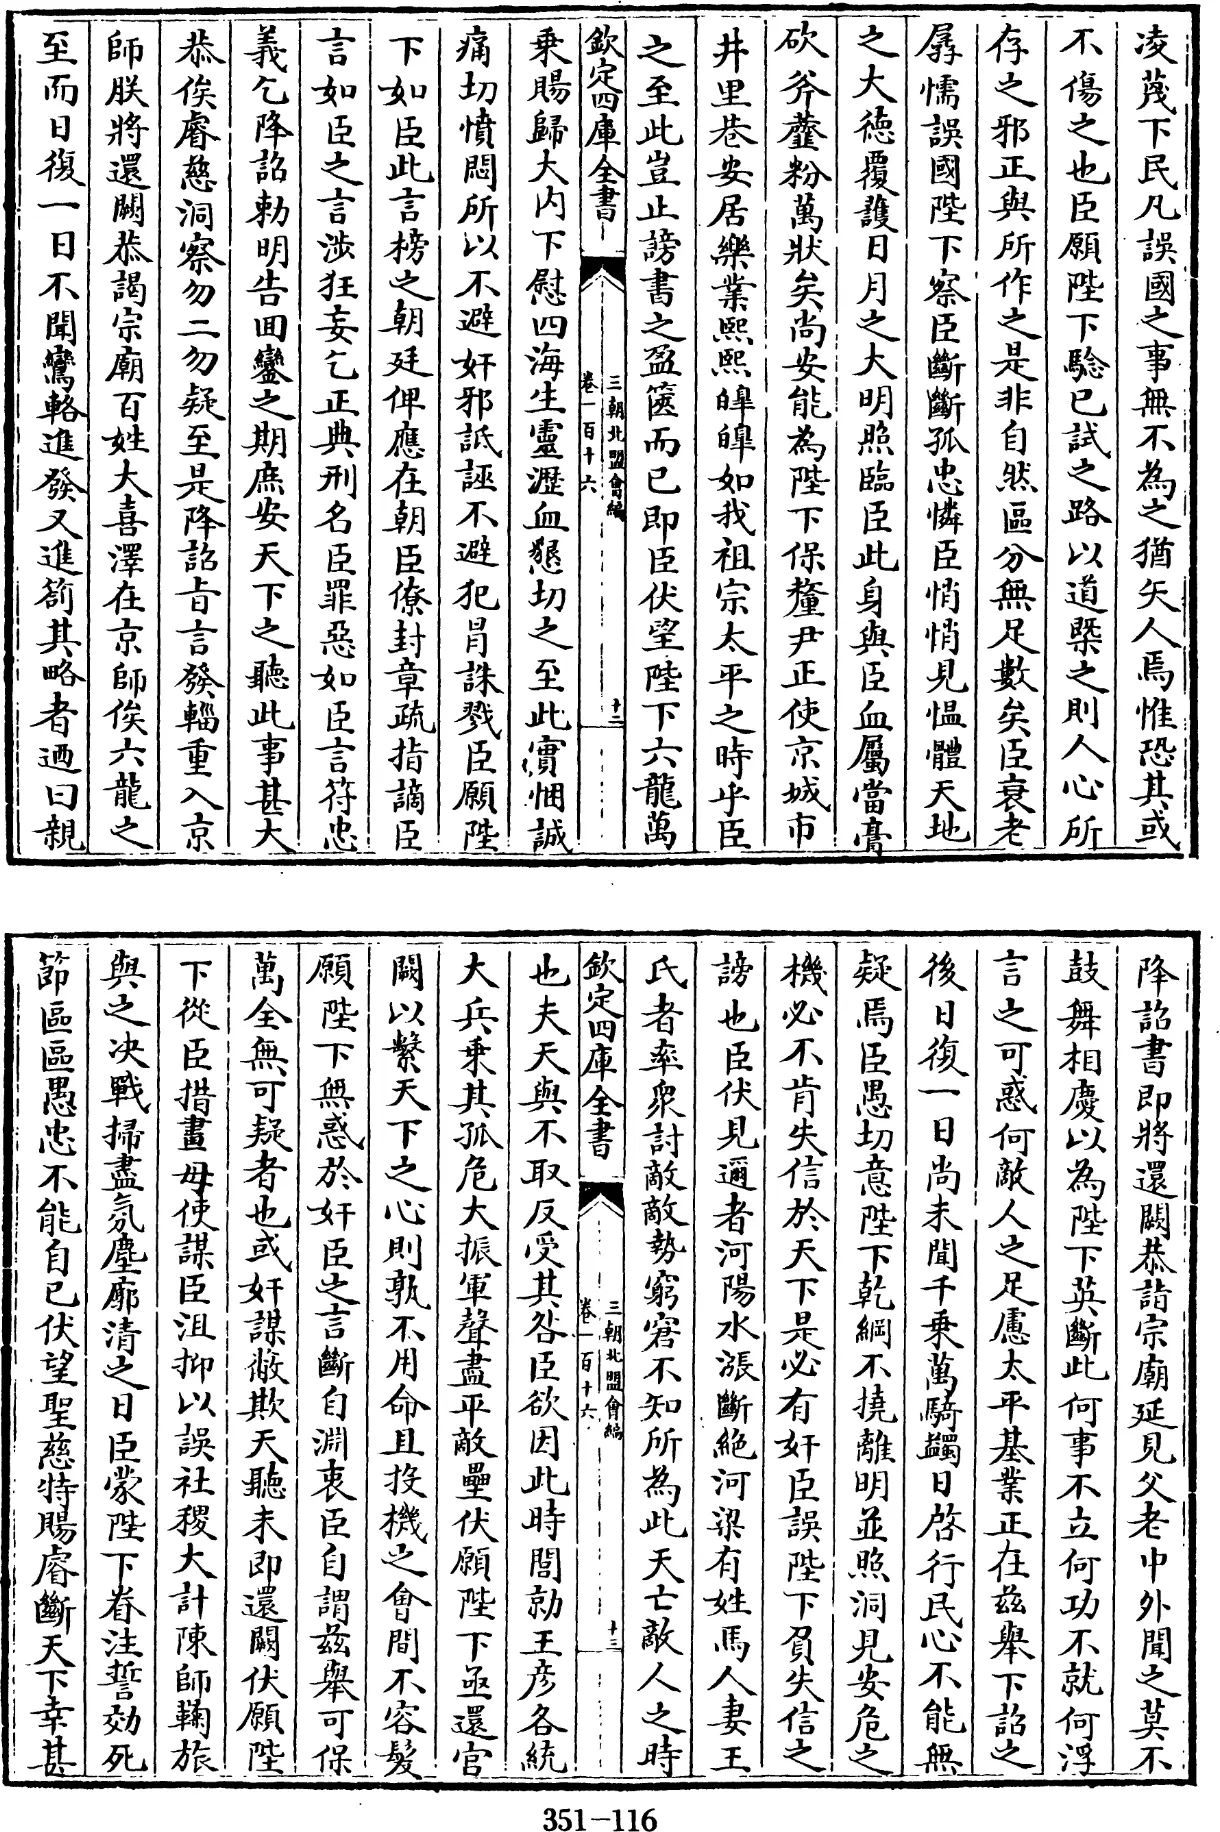 凌蔑下民凡誤國之事無不為之猶矢人焉惟恐其或
不傷之也臣願陛下驗已試之路以道槩之則人心所
存之邪正與所作之是非自然區分無足數矣臣衰老
孱懦誤國陛下察臣斷斷孤忠憐臣悄悄見愠體天地
之大德覆護日月之大明照臨臣此身與臣血屬當膏
砍斧虀粉萬狀矣尚安能為陛下保釐尹正使京城市
井里巷安居樂業熙熙皥皥如我祖宗太平之時乎臣
之至此豈止謗書之盈篋而已即臣伏望陛下六龍萬
欽定四庫全書
三朝北盟會編
卷一百十六
十二
乘賜歸大内下慰四海生靈瀝血懇切之至此實悃誠
痛切憤悶所以不避奸邪詆誣不避犯冐誅戮臣願陛
下如臣此言榜之朝廷俾應在朝臣僚封章疏指謫臣
言如臣之言涉狂妄乞正典刑名臣罪惡如臣言符忠
義乞降詔勅明告囬鑾之期庶安天下之聽此事甚大
恭俟睿慈洞察勿二勿疑至是降詔㫖言發輜重入京
師朕將還闕恭謁宗廟百姓大喜澤在京師俟六龍之
至而日復一日不聞鸞輅進發又進劄其略者迺曰親
降詔書即將還闕恭詣宗廟延見父老中外聞之莫不
鼓舞相慶以為陛下英斷此何事不立何功不就何浮
言之可惑何敵人之足慮太平基業正在兹舉下詔之
後日復一日尚未聞千乘萬騎蠲日啓行民心不能無
疑焉臣愚切意陛下乾綱不撓離明並照洞見安危之
機必不肯失信於天下是必有奸臣誤陛下負失信之
謗也臣伏見邇者河陽水漲斷絶河梁有姓馬人妻王
氏者率衆討敵敵勢窮窘不知所為此天亡敵人之時
欽定四庫全書
三朝北盟會編
卷一百十六
十三
也夫天與不取反受其咎臣欲因此時閭勍王彦各統
大兵乘其孤危大振軍聲盡平敵壘伏願陛下亟還官
闕以繫天下之心則孰不用命且投機之會間不容髮
願陛下無惑於奸臣之言斷自淵衷臣自謂兹舉可保
萬全無可疑者也或奸謀蔽欺天聽未即還闕伏願陛
下從臣措畫毋使謀臣沮抑以誤社稷大計陳師鞠旅
與之决戰掃盡氛塵廓清之日臣蒙陛下眷注誓効死
節區區愚忠不能自已伏望聖慈特賜睿斷天下幸甚
351-116